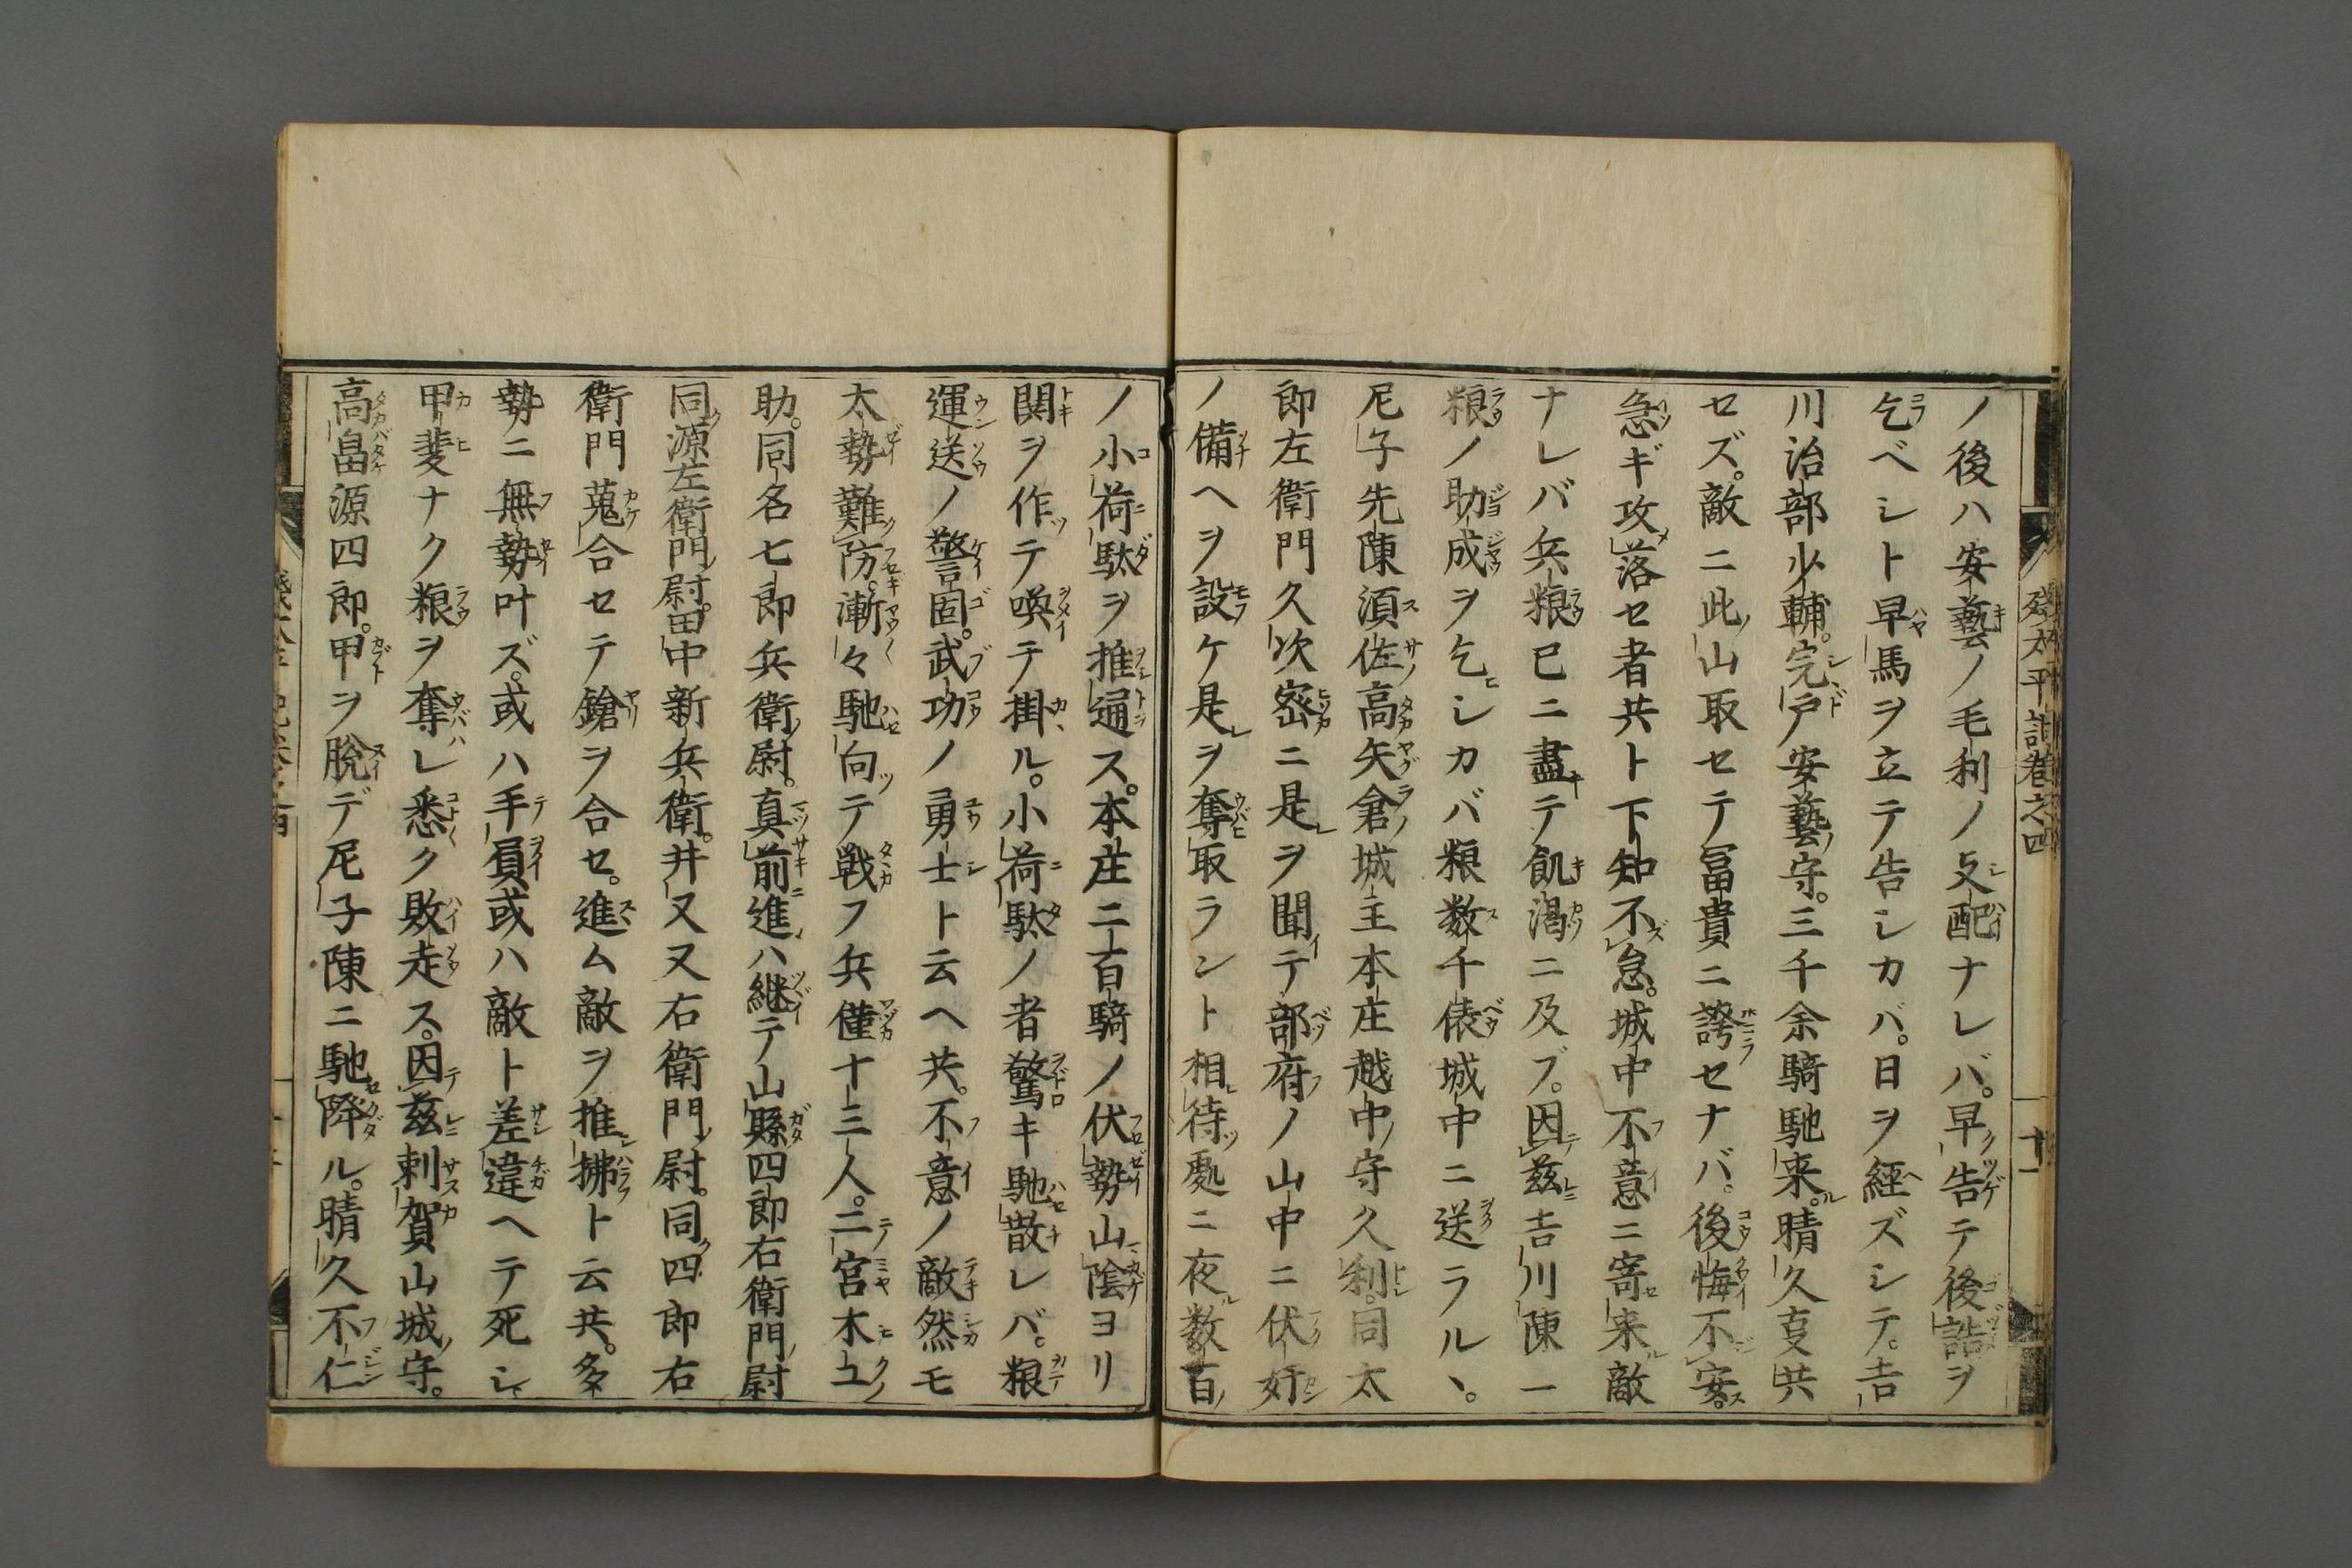 残太平記巻之四
十一
ノ後ハ安藝ノ毛利ノ支配ナレバ。早告テ後詰ヲ
乞ベシト早馬ヲ立テ告シカバ。日ヲ經ズシテ。吉
川治部少輔。完戸安藝守。三千余騎馳来。晴久㕝共
セズ。敵ニ此山取セテ冨貴ニ誇セナバ。後悔不安。
急ギ攻落セ者共ト下知不怠。城中不意ニ寄来敵
ナレバ兵粮已ニ盡テ飢渇ニ及ブ。因茲吉川陳一
粮ノ助成ヲ乞シカバ粮数千俵城中ニ送ラルヽ。
尼子先陳湏佐高矢倉城主本庄越中守久利。同太
郎左衛門久次密ニ是ヲ聞テ部府ノ山中ニ伏奸
ノ備ヘヲ設ケ是ヲ奪取ラント相待處ニ夜数百
ノ小荷駄ヲ推通ス。本庄二百騎ノ伏勢山陰ヨリ
関ヲ作テ喚テ掛ル。小荷駄ノ者驚キ馳散レバ。粮
運送ノ警固。武功ノ勇士ト云ヘ共。不意ノ敵然モ
太勢難防。漸々馳向テ戦フ兵僅十三人。二宮木工
助。同名七郎兵衛尉。真前進ハ継テ山縣四郎右衛門尉
同源左衛門尉。田中新兵衛。井又又右衛門尉。同四郎右
衛門蒐合セテ鎗ヲ合セ。進ム敵ヲ推拂ト云共。多
勢ニ無勢叶ズ。或ハ手負或ハ敵ト差違ヘテ死シ、
甲斐ナク粮ヲ奪レ悉ク敗走ス。因茲刺賀山城守。
高畠源四郎。甲ヲ脱デ尼子陳ニ馳降ル。晴久不仁